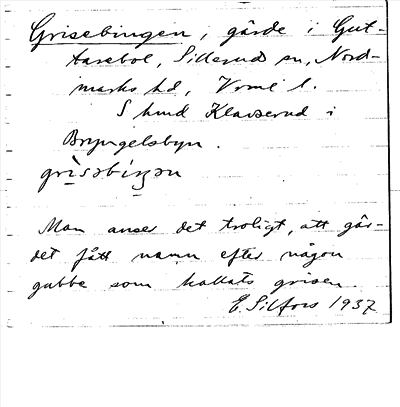 Grisebingen, gärde i Gut-
tarebol, Sillerud sn, Nord-
marks hd, Vrml l.
S hmd Klavserud i
Bryngelsbyn.
grìsəbiŋən
Man anser det troligt, att gär-
det fått namn efter någon
gubbe som kallats grisen.
E. Silfors 1937